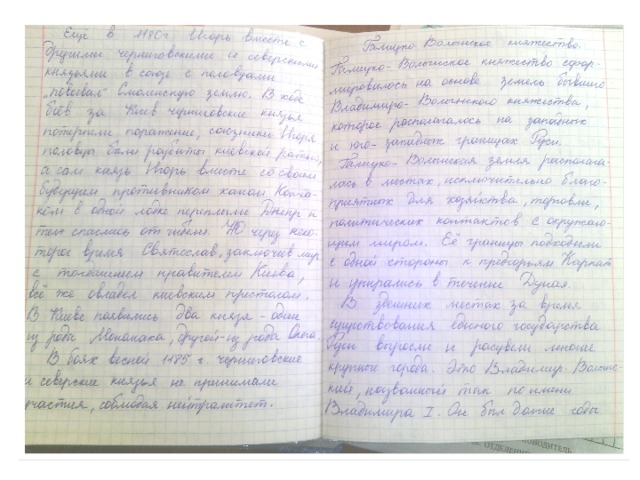 Ещё в 1180г Игорь вместе с
другими черниговскими и северскими
князьями в союзе с половцами
"повоевал" Смоленскую землю. В ходе
боёв за Киев черниговские князья
потерпели поражение, союзники Игоря
половцы были разбиты киевской ратью,
а сам князь Игорь вместе со своим
будущим противником ханом Конча-
ком в одной лодке переплыли Днепр и
тем спаслись от гибели. Но через неко-
торое время Святослав, заключив мир
с тогдашним правителем Киева,
всё же овладел киевским престолом.
В Киеве появились два князя - один
из рода Мономаха, другой - из рода Олега.
В боях весной 1185 г. черниговские
и северские князья не принимали
участия, соблюдая нейтралитет.
Галицко Волынское княжество.
Галицко-Волынское княжество сфор-
мировалось на основе земель бывшего
Владимиро-Волынского княжества,
которое располагалось на западных
и юго-западных границах Руси.
Галицко-Волынская земля располага-
лась в местах, исключительно благо-
приятных для хозяйства, торговли,
политических контактов с окружаю-
щим миром. Её границы подходили
с одной стороны к предгорьям Карпат
и упирались в течение Дуная.
В здешних местах за время
существования единого государства
Руси выросли и расцвели многие
крупные города. Это Владимир-Волынс-
кий, названный так по имени
Владимира I. Он был долгие годы
ВОДИТЕЛЬ
ОТДЕЛЕНИ